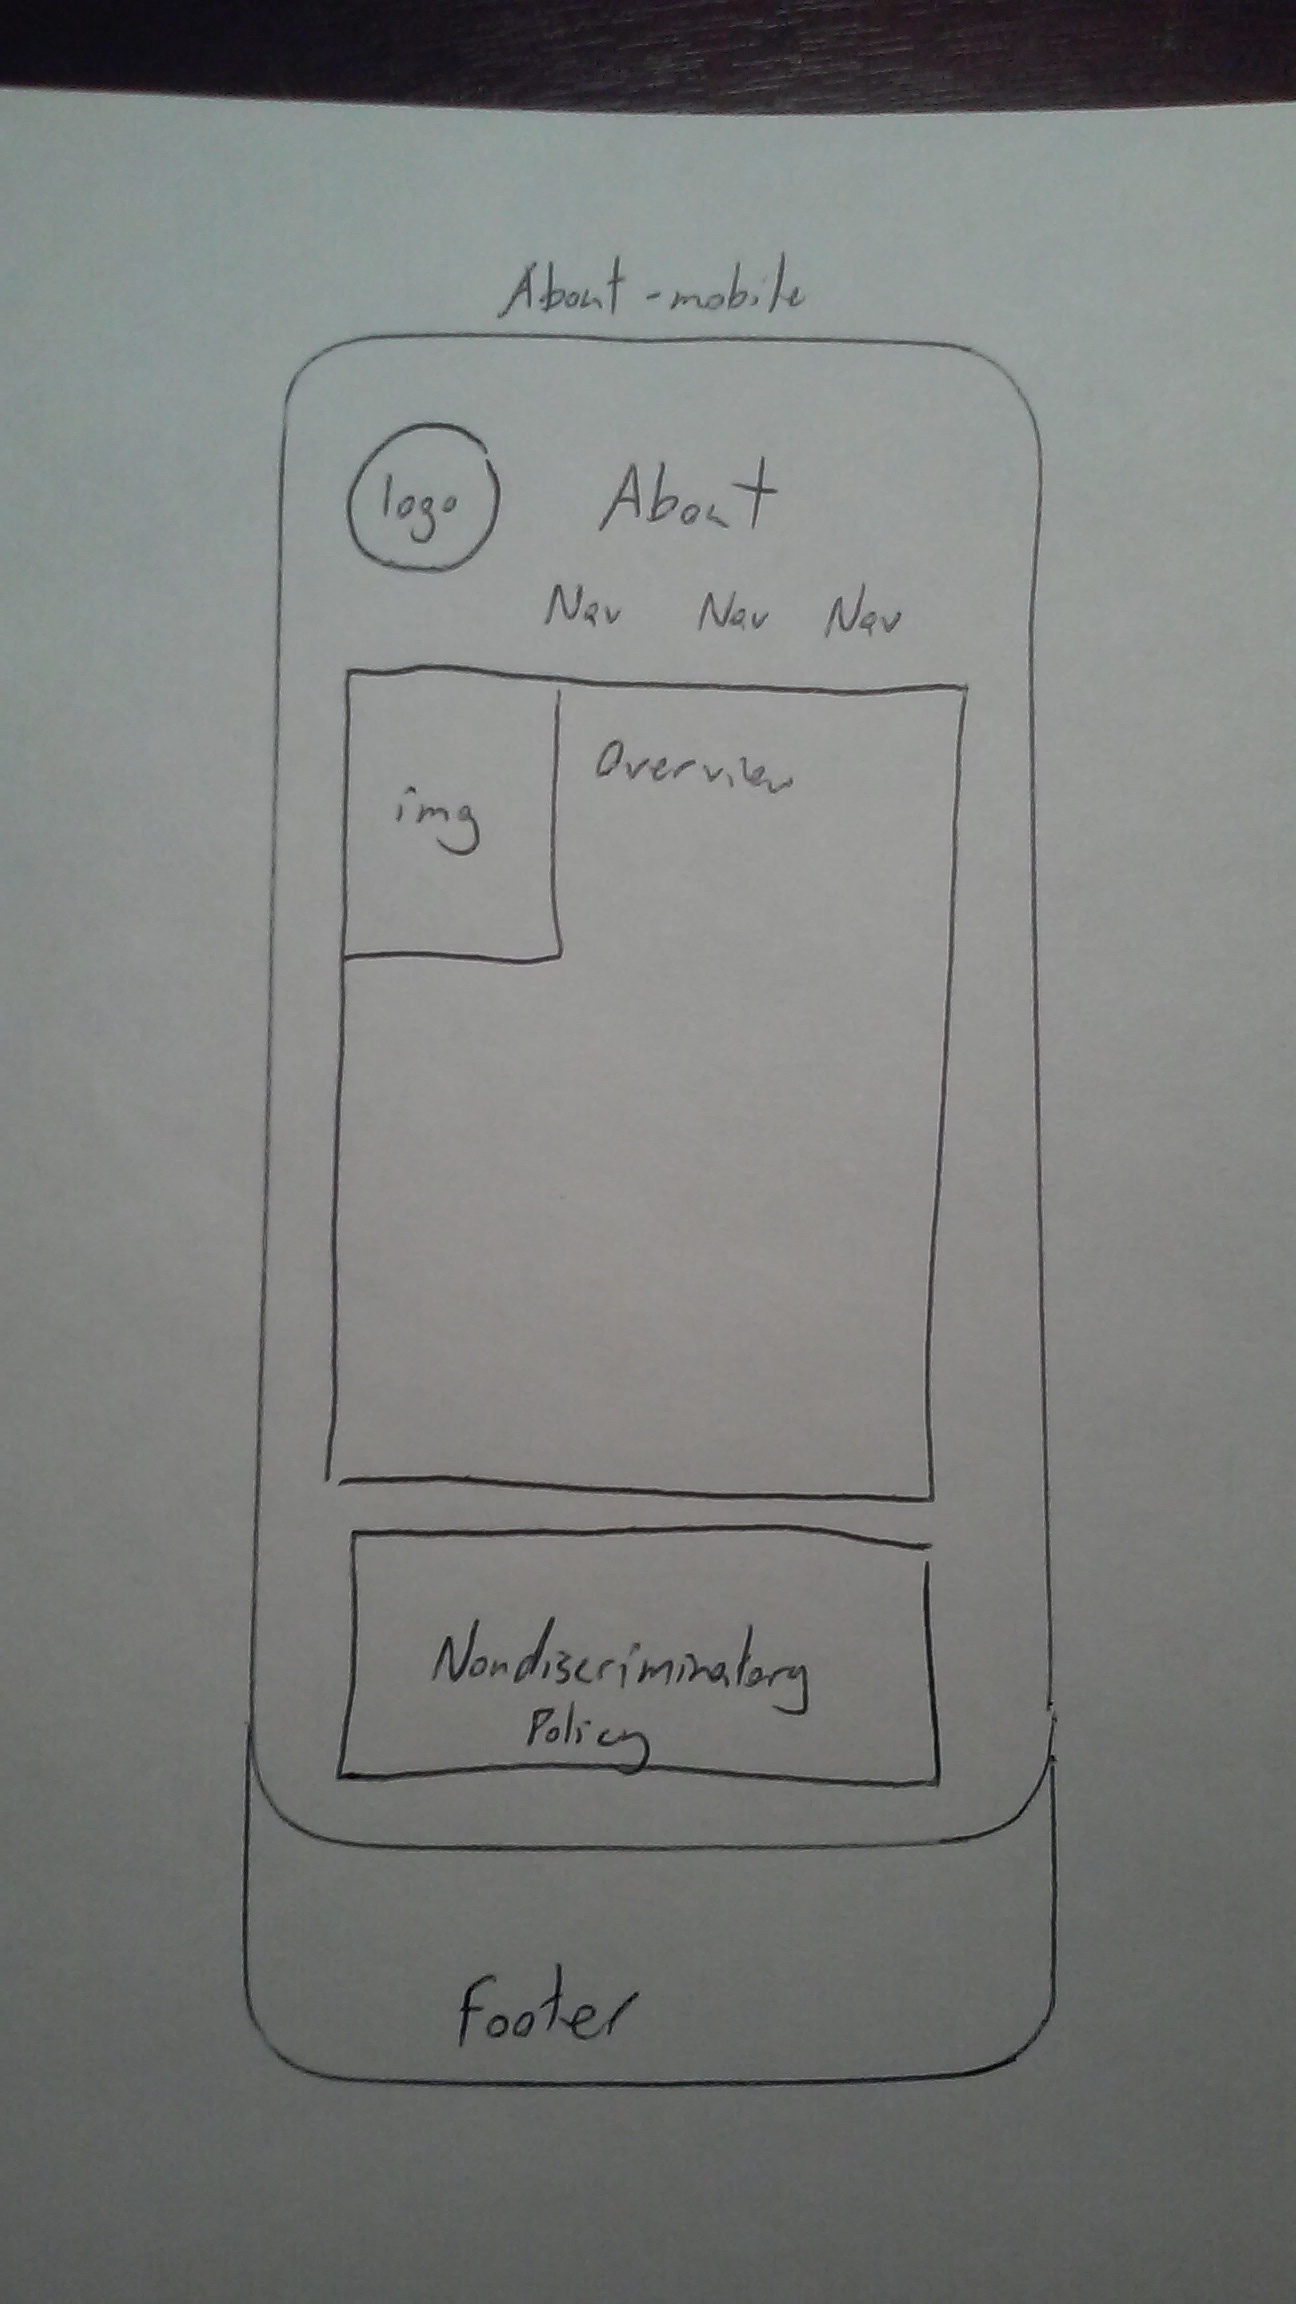 About - mobile
logo
About
Nav Nav Nav
img
Overview
Nondiscriminatory
Policy
Footer